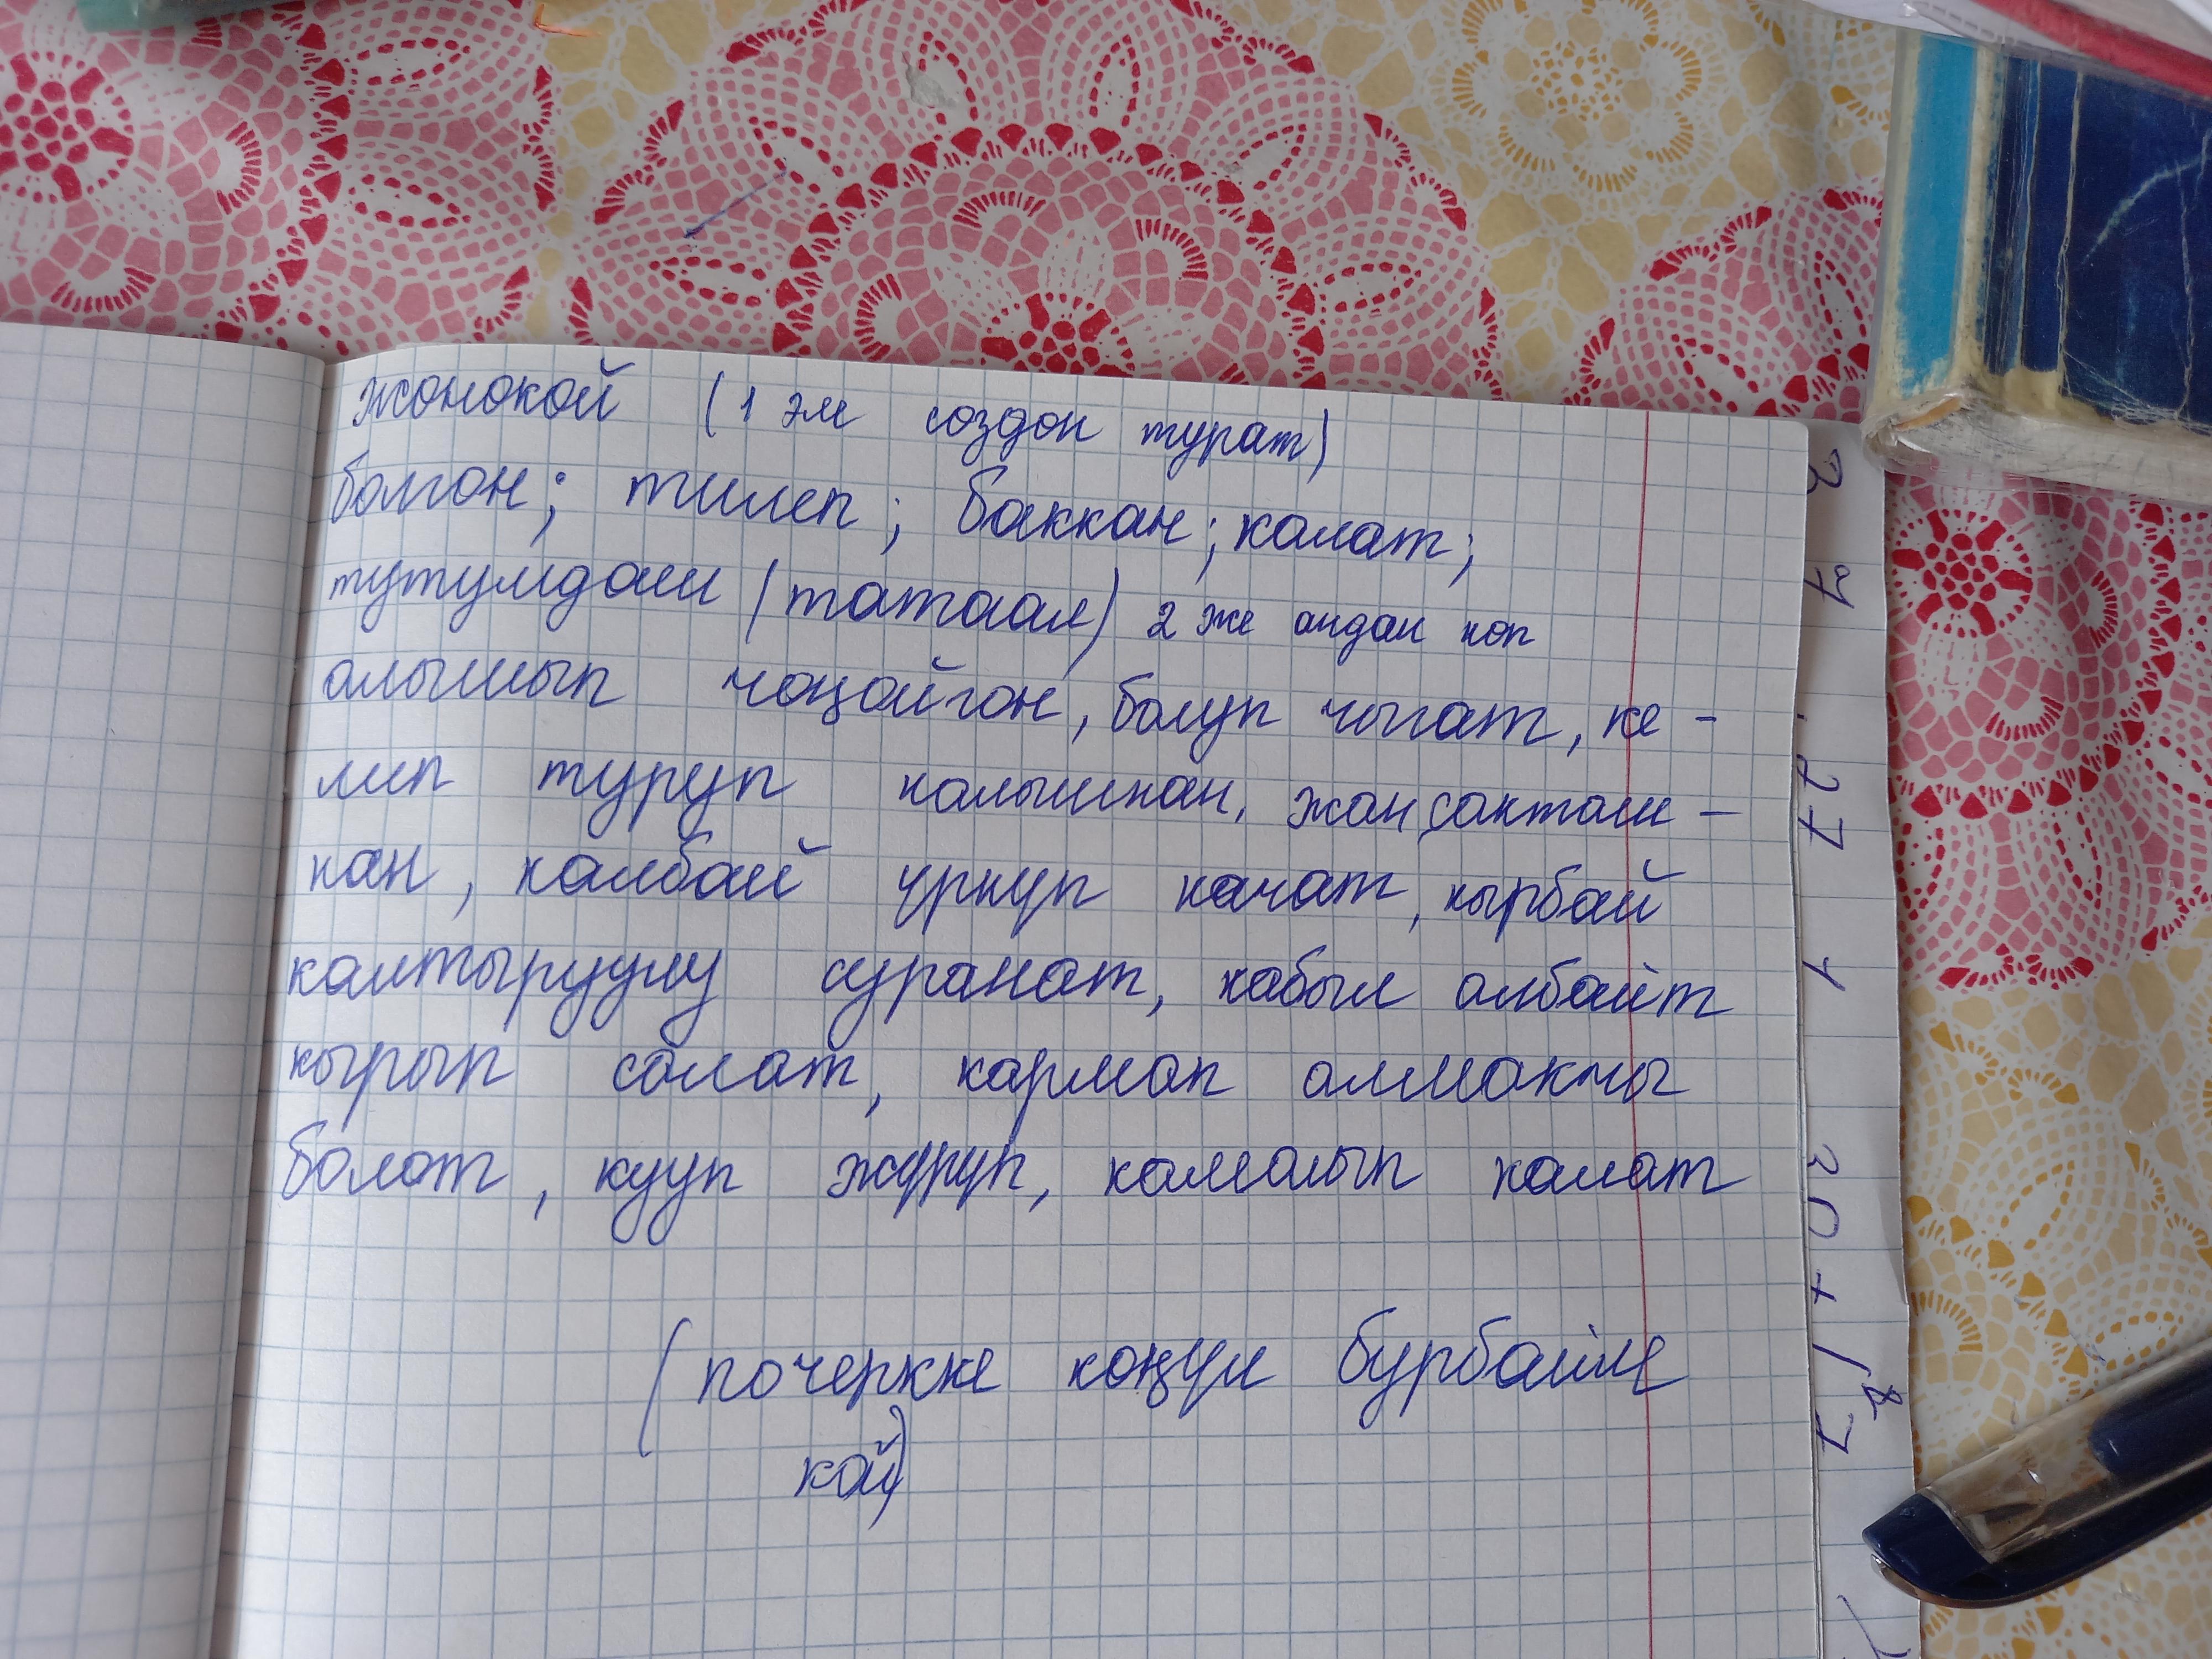 жонокой (1 эле создон турат)
болгон; тилеп; баккан; калат;
тутумдаш (татаал) 2 же андан коп
алышып чоңойгон, болуп чыгат, ке-
лип туруп калышкан, жан сакташ-
кан, калбай үркүп качат, кырбай
калтырууну суранат, кабыл албайт
кырып салат, кармап алмакчы
болот, кууп жүрүп, камалып калат
(почеркке коңүл бурбайле
кой)
3 7 . 27 1 30 + /